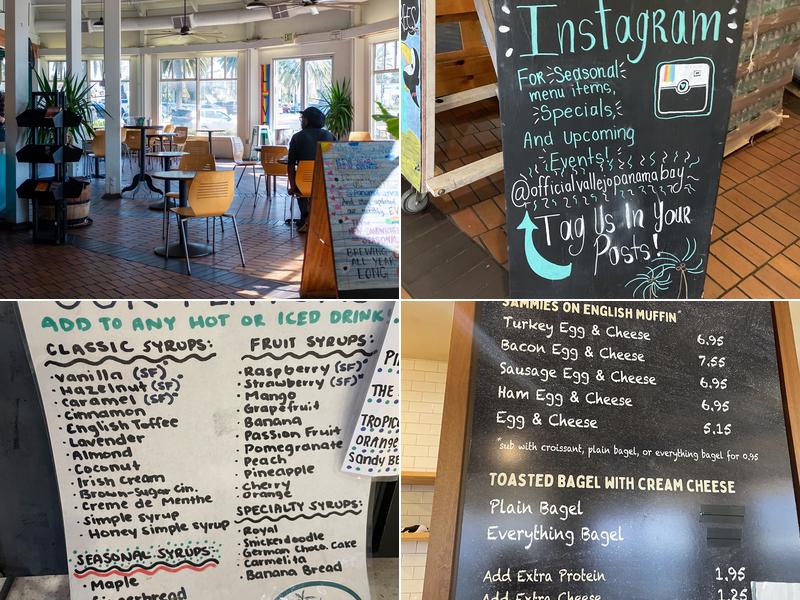 Instagram
For Seasonal
menu items,
Specials,
And Upcoming
Events!
@officialvallejopanamabay
Tag Us In Your
Posts!
BREWING
ALL YEAR
LONG
ADD TO ANY HOT OR ICED DRINK!
CLASSIC SYRUPS:
·Vanilla (SF)
·Hazelnut (SF)
·Caramel (SF)
·Cinnamon
·English Toffee
·Lavender
·Almond
·Coconut
·Irish Cream
·Brown-Sugar Cin.
·Creme de Menthe
·Simple syrup
·Honey Simple syrup
SEASONAL SYRUPS:
·Maple
·Gingerbread
FRUIT SYRUPS:
·Raspberry (SF)
·Strawberry (SF)
·Mango
·Grapefruit
·Banana
·Passion Fruit
·Pomegranate
·Peach
·Pineapple
·Cherry
·Orange
SPECIALTY SYRUPS:
·Royal
·Snickerdoodle
·German Choco. Cake
·Carmelita
·Banana Bread
THE
TROPIC
ORANGE
SANDY BE
SAMMIES ON ENGLISH MUFFIN*
Turkey Egg & Cheese 6.95
Bacon Egg & Cheese 7.55
Sausage Egg & Cheese 6.95
Ham Egg & Cheese 6.95
Egg & Cheese 5.15
*sub with croissant, plain bagel, or everything bagel for 0.95
TOASTED BAGEL WITH CREAM CHEESE
Plain Bagel
Everything Bagel
Add Extra Protein 1.95
Add Extra Cheese 1.25